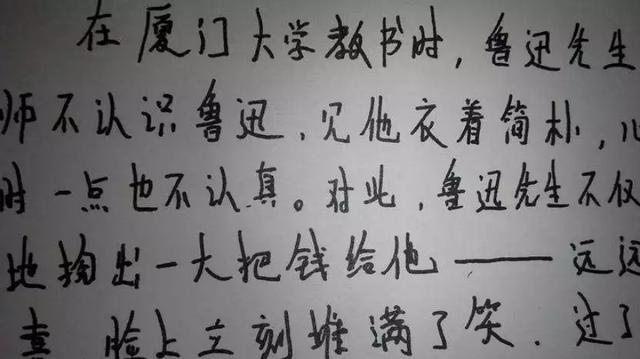 在厦门大学教书时，鲁迅先生
师不认识鲁迅，见他衣着简朴，心
时一点也不认真。对此，鲁迅先生不仅
地掏出一大把钱给他——远远
喜 脸上立刻堆满了笑．过了